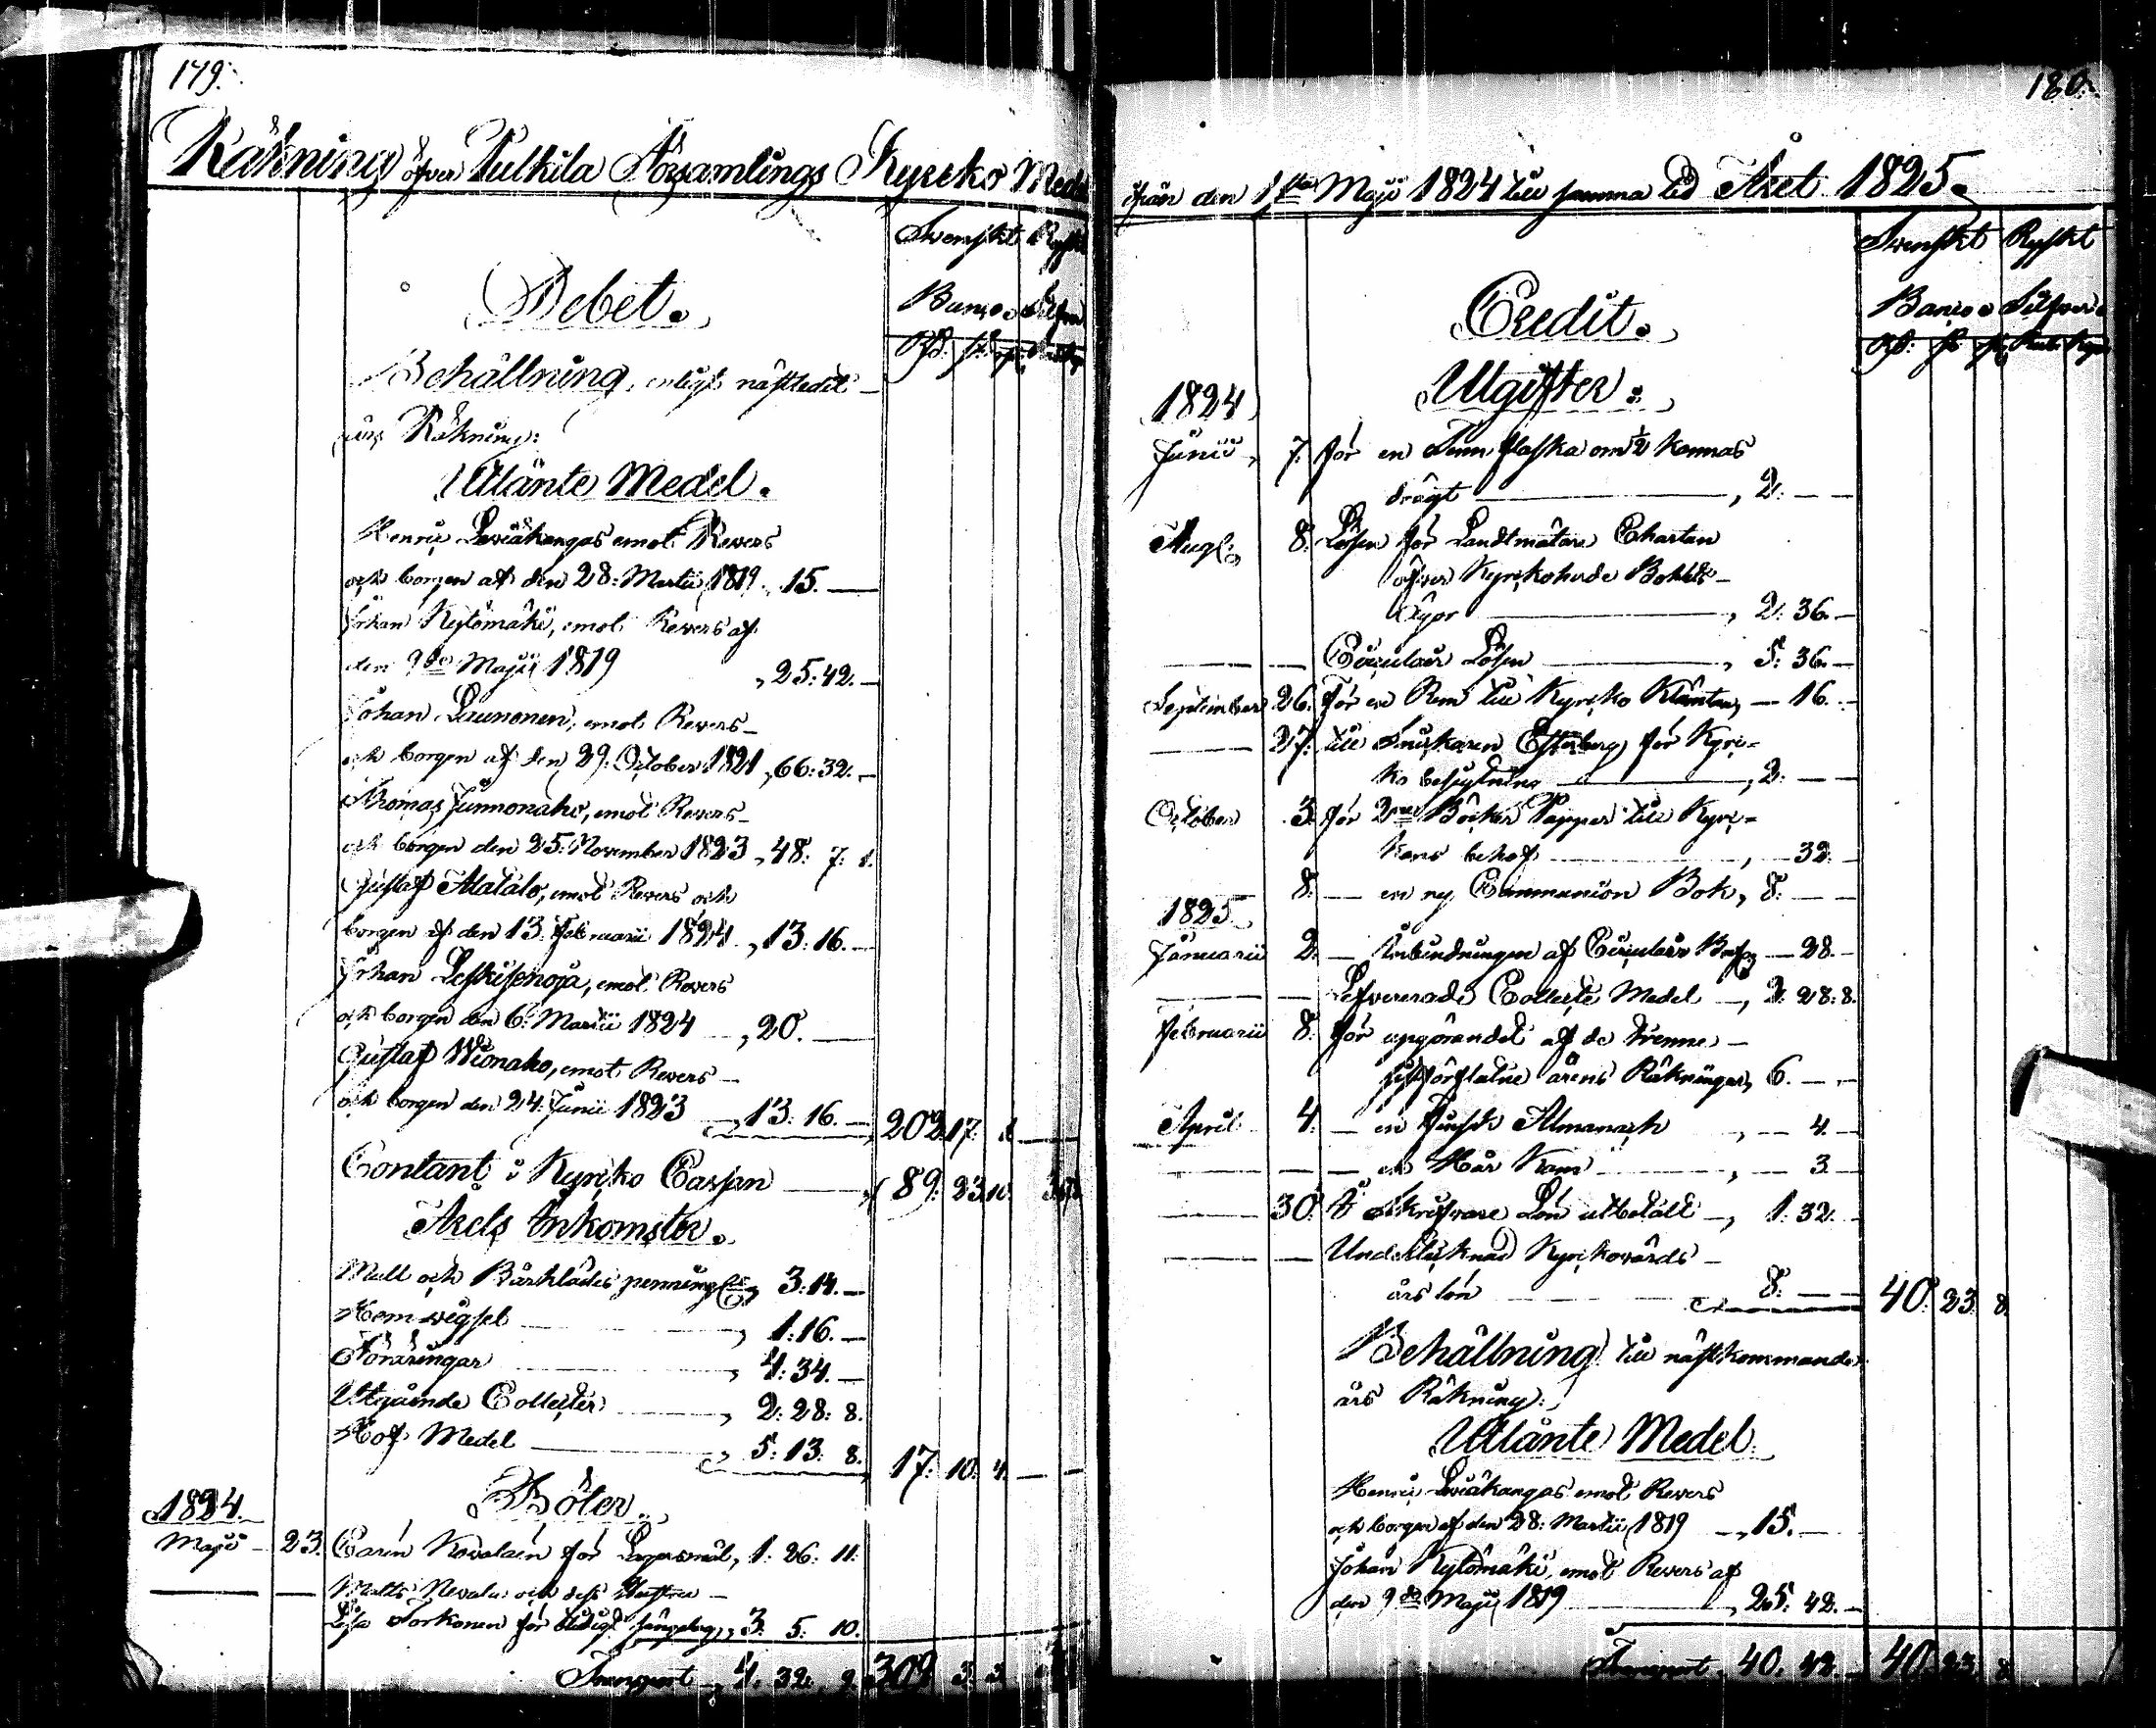 179.
Räkning öfver Pulkila Församlings Kyrcko Medel
Swenskt Ryskt
Debet.
Banco. Silfver
Rd. sk. rst.
Behållning, enligt nästledit
års Räkning:
Utlånte Medel.
Henric Leviäkangas emot Revers
och borgen af den 28. Martii 1819. 15. —
Johan Kytömäki, emot Revers af
den 9de Maji 1819 , 25: 42. —
Johan Launonen, emot Revers
och borgen af den 29. October 1821 , 66: 32. —
Thomas Junnonaho, emot Revers
och borgen den 25. November 1823 , 48: 7: 1.
Gustaf Alatalo, emot Revers och
borgen af den 13. Februarii 1824 , 13: 16. —
Johan Leskisenoja, emot Revers
och borgen den 6. Martii 1824 , 20. —
Gustaf Wionaho, emot Revers
och borgen den 24. Junii 1823 , 13: 16. — 202: 17: 1. —
Contant i Kyrcko Cassan — 89: 23. 10.
Årets Inkomster.
Mull och Bårklädes penning , 3: 14. —
Hemwigsel , 1: 16. —
Föräringar , 4: 34. —
Utgående Collecter , 2: 28: 8.
Hof Medel , 5: 13: 8. 17: 10: 4. —
1824. Böter.
Maji 23. Carin Kovalain för Lägersmål, 1: 26: 11.
— — Matts Nevala och dess Hustru
Lisa Torkonen för otidigt sängelag, 3: 5: 10.
Transport , 4: 32: 9. 309. 3. 3.
180.
ifrån den 1sta Maji 1824 till samma tid Året 1825.
Swenskt Ryskt
Credit.
Banco. Silfver.
Rd: sk rst Rub. Kop
Utgifter:
1824
Junii 7. För en Tenn flaska om ½ Kannas
drägt , 2: — —
Aug. 8. Lösen för Landtmätare Chartan
öfver Kyrckoherde Bohlets
Ägor , 2: 36. —
— — Circulair Lösen , 5: 36. —
September 26. För en Rem till Kyrcko Kläntan, — 16. —
— 27. till Snickaren Österberg för Kyrc-
ko besigtning , 2: — —
October 3. för 2ne Böcker Papper till Kyrc-
kans behof , — 32. —
8. — en ny Communion Bok, 8: — —
1825
Januarii 2. — Inbindningen af Circulair Bref — 28. —
— — Lefvererade Collecte Medel , 2: 28: 8.
Februarii 8. För upgörandet af de trenne
sistförflutne årens Räkningar, 6. — —
April 4. — en Finsk Almanach , — 4. —
— — — en Hår Kam , — 3
— 30. I Skrifvare Lön utbetalt , 1: 32. —
— — Undertecknad Kyrckovärds
års lön 8: — — 40: 23. 8.
Behållning till nästkommande
års Räkning:
Utlånte Medel.
Henric Leviäkangas emot Revers
och borgen af den 28. Martii 1819 , 15. —
Johan Kytömäki, emot Revers af
den 9de Maji 1819 , 25: 42. —
Transport, 40. 42. — 40: 23. 8.